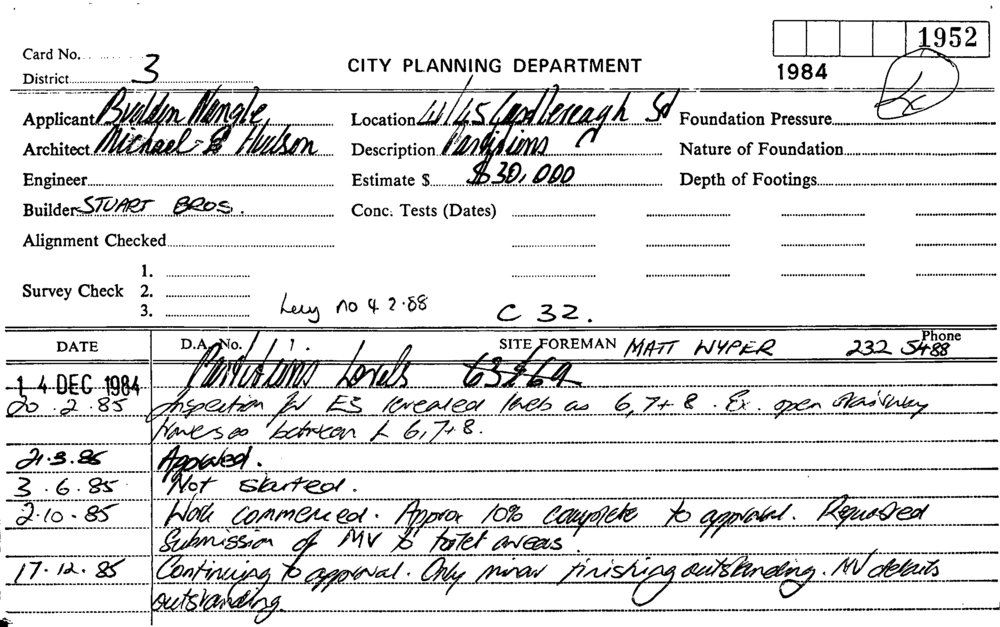 1952
1984
Card No.
District 3
CITY PLANNING DEPARTMENT
Applicant Buildon Nangle,
Location 41/45 Castlereagh St
Foundation Pressure
Architect Michael Hudson
Description Partitions
Nature of Foundation
Engineer
Estimate $ $30,000
Depth of Footings
Builder STUART BROS.
Conc. Tests (Dates)
Alignment Checked
Survey Check
1.
2.
3.
Levy no 4 2.88
C 32.
DATE
D.A. No.
SITE FOREMAN MATT WYPER
Phone
232 5488
14 DEC 1984
Partitions Levels
20.2.85 Inspection for ES revealed levels as 6,7+8. Ex. open stairway
between L 6,7+8.
21.3.85 Approved.
3.6.85 Not started.
2.10.85 Work commenced. Approx 10% complete to approval. Requested
Submission of MV to toilet areas.
17.12.85 Continuing to approval. Only minor finishing outstanding. MV details
outstanding.